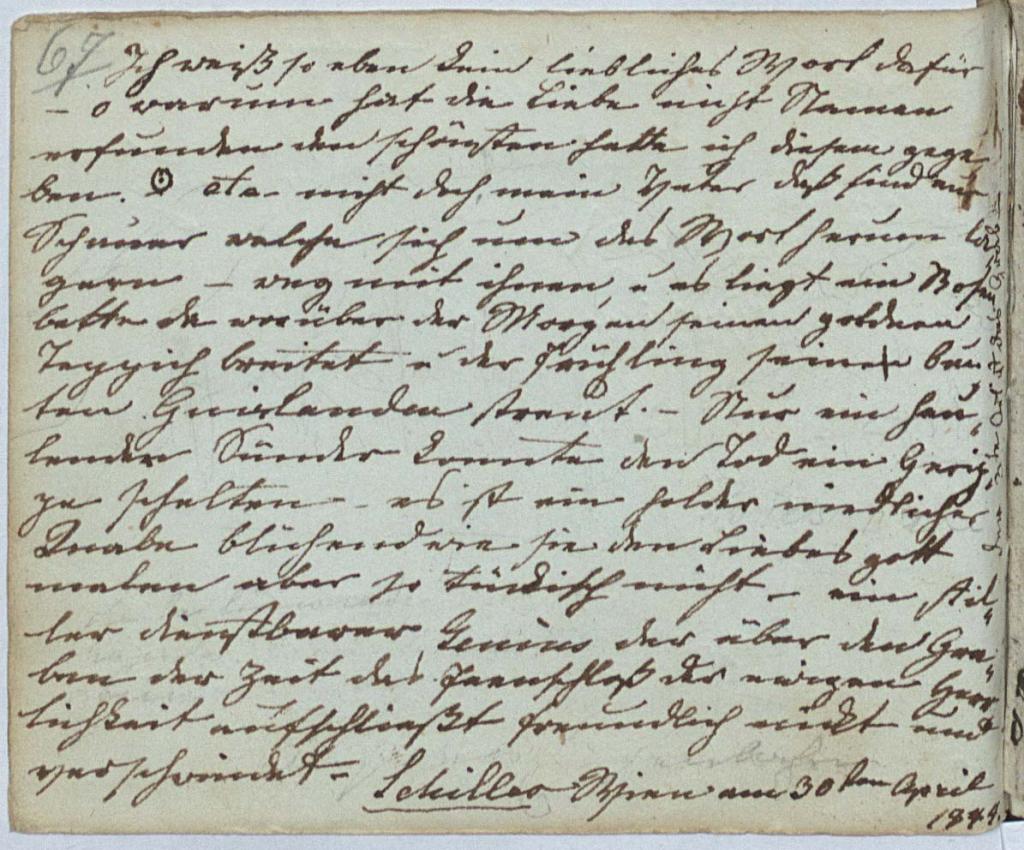 67.
Ich weiß so eben kein liebliches Wort dafür
– o warum hat die Liebe nicht Namen
erfunden den schönsten hätte ich diesem gege
ben. nicht doch, mein Vater daß sind nur
Schauer welche sich um das Wort herum la
gern – weg mit ihnen, u es liegt ein Rosen
bette da worüber der Morgen seinen goldnen
Teppich breitet u der Frühling seine bun,
ten Guirlanden streut. – Nur ein heu,
lender Sünder konnte den Tod ein Gerip
pe schelten – es ist ein holder niedlicher
Knabe blühend wie sie den Liebesgott
malen aber so tückisch nicht – ein stil„
ler dienstbarer Genius der über den Gra„
ben der Zeit das Feenschloß der ewigen Herr
lichkeit aufschließt freundlich nickt und
verschwindet –
Schiller Wien am 30ten April
1844.